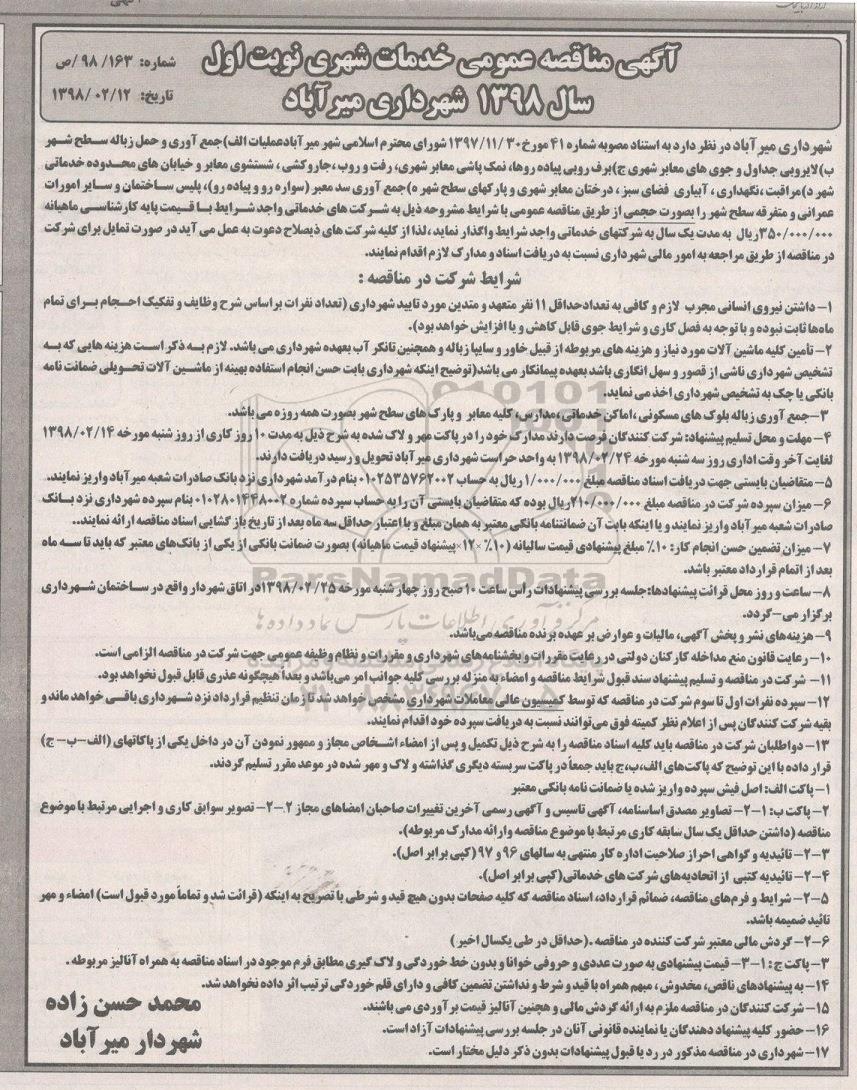 آگهی مناقصه عمومی خدمات شهری نوبت اول
سال ۱۳۹۸ شهرداری میرآباد
شماره: ۹۸/۱۶۳/ص
تاریخ: ۱۳۹۸/۰۲/۱۲
شهرداری میرآباد در نظر دارد به استناد مصوبه شماره ۴۱ مورخ ۱۳۹۷/۱۱/۳۰ شورای محترم اسلامی شهر میرآباد عملیات الف)جمع آوری و حمل زباله سطح شهر
ب)لایروبی جداول و جوی های معابر شهری ج)برف روبی پیاده روها، نمک پاشی معابر شهری، رفت و روب ،جاروکشی ، شستشوی معابر و خیابان های محدوده خدماتی
شهر د)مراقبت ،نگهداری ، آبیاری فضای سبز ، درختان معابر شهری و پارکهای سطح شهر ه)جمع آوری سد معبر (سواره رو و پیاده رو)، پلیس ساختمان و سایر امورات
عمرانی و متفرقه سطح شهر را بصورت حجمی از طریق مناقصه عمومی با شرایط مشروحه ذیل به شرکت های خدماتی واجد شرایط با قیمت پایه کارشناسی ماهیانه
۳۵۰/۰۰۰/۰۰۰ریال به مدت یک سال به شرکتهای خدماتی واجد شرایط واگذار نماید ،لذا از کلیه شرکت های ذیصلاح دعوت به عمل می آید در صورت تمایل برای شرکت
در مناقصه از طریق مراجعه به امور مالی شهرداری نسبت به دریافت اسناد و مدارک لازم اقدام نمایند.
شرایط شرکت در مناقصه :
۱- داشتن نیروی انسانی مجرب لازم و کافی به تعدادحداقل ۱۱ نفر متعهد و متدین مورد تایید شهرداری (تعداد نفرات براساس شرح وظایف و تفکیک احجام برای تمام
ماه‌ها ثابت نبوده و با توجه به فصل کاری و شرایط جوی قابل کاهش و یا افزایش خواهد بود).
۲- تأمین کلیه ماشین آلات مورد نیاز و هزینه های مربوطه از قبیل خاور و سایپا زباله و همچنین تانکر آب بعهده شهرداری می باشد. لازم به ذکر است هزینه هایی که به
تشخیص شهرداری ناشی از قصور و سهل انگاری باشد بعهده پیمانکار می باشد(توضیح اینکه شهرداری بابت حسن انجام استفاده بهینه از ماشین آلات تحویلی ضمانت نامه
بانکی یا چک به تشخیص شهرداری اخذ می نماید.
۳-جمع آوری زباله بلوک های مسکونی ،اماکن خدماتی ،مدارس، کلیه معابر و پارک های سطح شهر بصورت همه روزه می باشد.
۴- مهلت و محل تسلیم پیشنهاد: شرکت کنندگان فرصت دارند مدارک خود را در پاکت مهر و لاک شده به شرح ذیل به مدت ۱۰ روز کاری از روز شنبه مورخه ۱۳۹۸/۰۲/۱۴
لغایت آخر وقت اداری روز سه شنبه مورخه ۱۳۹۸/۰۲/۲۴ به واحد حراست شهرداری میرآباد تحویل و رسید دریافت دارند.
۵- متقاضیان بایستی جهت دریافت اسناد مناقصه مبلغ ۱/۰۰۰/۰۰۰ ریال به حساب ۰۱۰۲۵۳۵۷۶۲۰۰۲ بنام درآمد شهرداری نزد بانک صادرات شعبه میرآباد واریز نمایند.
۶- میزان سپرده شرکت در مناقصه مبلغ ۲۱۰/۰۰۰/۰۰۰ریال بوده که متقاضیان بایستی آن را به حساب سپرده شماره ۰۱۰۲۸۰۱۴۴۸۰۰۲ بنام سپرده شهرداری نزد بانک
صادرات شعبه میرآباد واریز نمایند و یا اینکه بابت آن ضمانتنامه بانکی معتبر به همان مبلغ و با اعتبار حداقل سه ماه بعد از تاریخ باز گشایی اسناد مناقصه ارائه نمایند..
۷- میزان تضمین حسن انجام کار: ۱۰٪ مبلغ پیشنهادی قیمت سالیانه (۱۰٪ ×۱۲×پیشنهاد قیمت ماهیانه) بصورت ضمانت بانکی از یکی از بانک‌های معتبر که باید تا سه ماه
بعد از اتمام قرارداد معتبر باشد.
۸- ساعت و روز محل قرائت پیشنهادها:جلسه بررسی پیشنهادات رأس ساعت ۱۰ صبح روز چهار شنبه مورخه ۱۳۹۸/۰۲/۲۵در اتاق شهردار واقع در ساختمان شهرداری
برگزار می-گردد.
۹- هزینه‌های نشر و پخش آگهی، مالیات و عوارض بر عهده برنده مناقصه می‌باشد.
۱۰- رعایت قانون منع مداخله کارکنان دولتی در رعایت مقررات و بخشنامه‌های شهرداری و مقررات و نظام وظیفه عمومی جهت شرکت در مناقصه الزامی است.
۱۱- شرکت در مناقصه و تسلیم پیشنهاد سند قبول شرایط مناقصه و امضاء به منزله بررسی کلیه جوانب امر می‌باشد و بعداً هیچگونه عذری قابل قبول نخواهد بود.
۱۲- سپرده نفرات اول تا سوم شرکت در مناقصه که توسط کمیسیون عالی معاملات شهرداری مشخص خواهد شد تا زمان تنظیم قرارداد نزد شهرداری باقی خواهد ماند و
بقیه شرکت کنندگان پس از اعلام نظر کمیته فوق می‌توانند نسبت به دریافت سپرده خود اقدام نمایند.
۱۳- دواطلبان شرکت در مناقصه باید کلیه اسناد مناقصه را به شرح ذیل تکمیل و پس از امضاء اشخاص مجاز و ممهور نمودن آن در داخل یکی از پاکاتهای (الف-ب- ج)
قرار داده با این توضیح که پاکت‌های الف،ب،ج باید جمعاً در پاکت سربسته دیگری گذاشته و لاک و مهر شده در موعد مقرر تسلیم گردند.
۱- پاکت الف: اصل فیش سپرده واریز شده یا ضمانت نامه بانکی معتبر
۲- پاکت ب: ۱-۲- تصاویر مصدق اساسنامه، آگهی تاسیس و آگهی رسمی آخرین تغییرات صاحبان امضاهای مجاز ۲-۲- تصویر سوابق کاری و اجرایی مرتبط با موضوع
مناقصه (داشتن حداقل یک سال سابقه کاری مرتبط با موضوع مناقصه وارائه مدارک مربوطه).
۲-۳- تائیدیه و گواهی احراز صلاحیت اداره کار منتهی به سالهای ۹۶ و ۹۷ (کپی برابر اصل).
۲-۴- تائیدیه کتبی از اتحادیه‌های شرکت های خدماتی(کپی برابر اصل).
۲-۵- شرایط و فرم‌های مناقصه، ضمائم قرارداد، اسناد مناقصه که کلیه صفحات بدون هیچ قید و شرطی با تصریح به اینکه (قرائت شد و تماماً مورد قبول است) امضاء و مهر
تائید ضمیمه باشد.
۲-۶- گردش مالی معتبر شرکت کننده در مناقصه .(حداقل در طی یکسال اخیر)
۳- پاکت ج: ۱-۳- قیمت پیشنهادی به صورت عددی و حروفی خوانا و بدون خط خوردگی و لاک گیری مطابق فرم موجود در اسناد مناقصه به همراه آنالیز مربوطه .
۱۴- به پیشنهادهای ناقص، مخدوش ، مبهم همراه با قید و شرط و نداشتن تضمین کافی و دارای قلم خوردگی ترتیب اثر داده نخواهد شد.
۱۵- شرکت کنندگان در مناقصه ملزم به ارائه گردش مالی و هچنین آنالیز قیمت برآوردی می باشند.
۱۶- حضور کلیه پیشنهاد دهندگان یا نماینده قانونی آنان در جلسه بررسی پیشنهادات آزاد است.
۱۷- شهرداری در مناقصه مذکور در رد یا قبول پیشنهادات بدون ذکر دلیل مختار است.
محمد حسن زاده
شهردار میرآباد
ParsNamadData
مرکز فرآوری اطلاعات پارس نماد داده ها